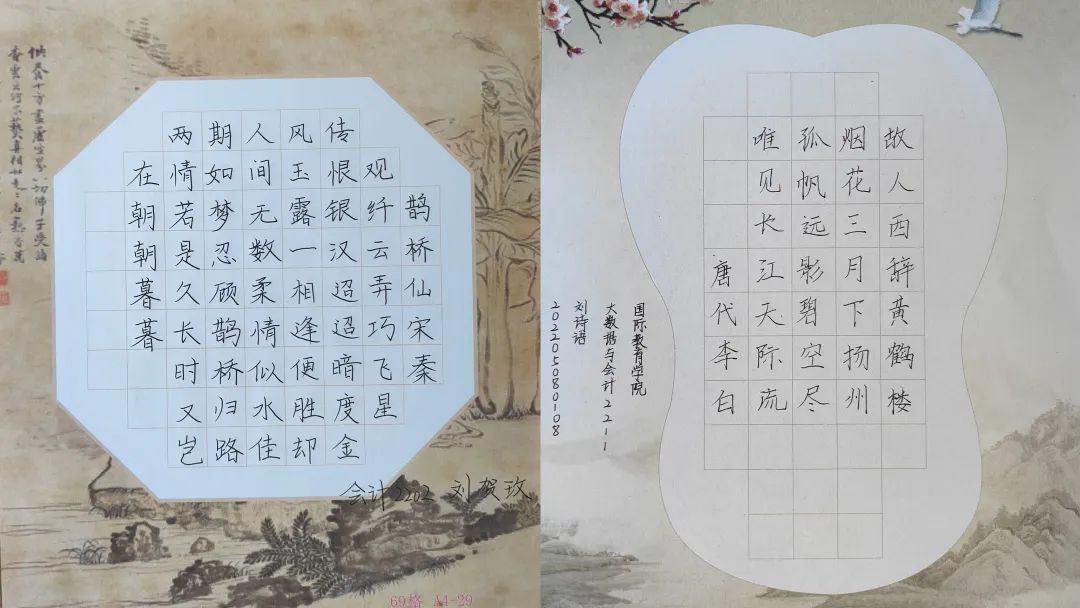 鹊桥仙宋秦
观纤云弄巧飞星
传恨银汉迢迢暗度金
风玉露一相逢便胜却
人间无数柔情似水佳
期如梦忍顾鹊桥归路
两情若是久长时又岂
在朝朝暮暮
会计2202 刘贺玫
69格 A4-29
故人西辞黄鹤楼
烟花三月下扬州
孤帆远影碧空尽
唯见长江天际流
唐代李白
国际教育学院
大数据与会计2211
刘诗语
202205080108